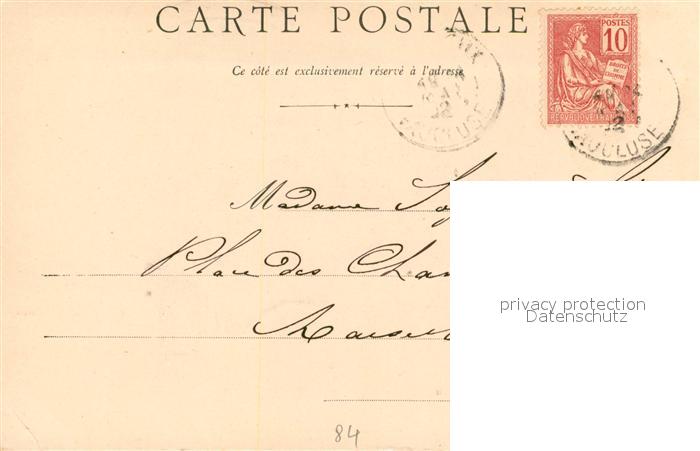 CARTE POSTALE
Ce côté est exclusivement réservé à l'adresse
POSTES
10
DROITS DE L'HOMME
REPUBLIQUE FRANCAISE
VAUCLUSE
VAUCLUSE
Madame
Place des
privacy protection
Datenschutz
84